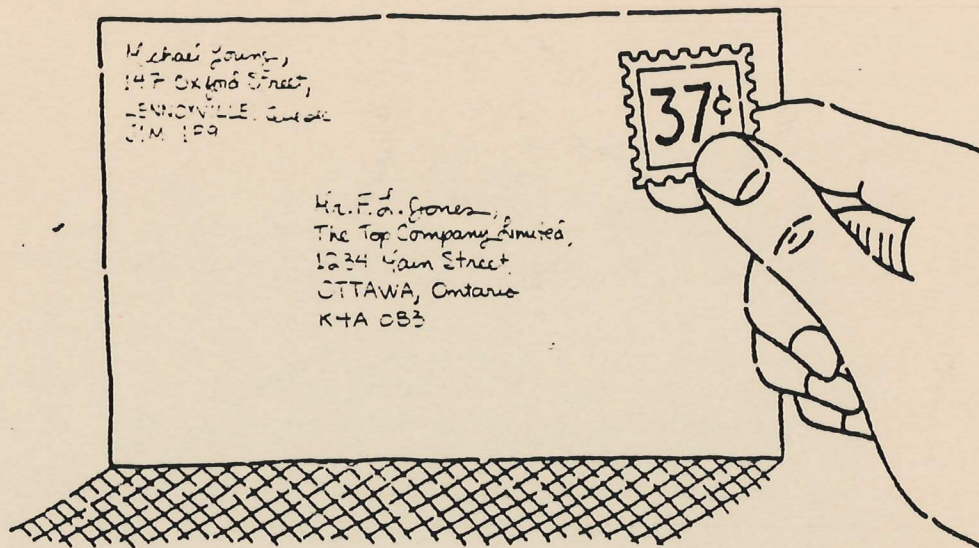 Michael Young,
147 Oxford Street,
LENNOXVILLE, Quebec
J1M 1P9
37¢
Mr. F. L. Jones,
The Top Company Limited,
1234 Main Street
OTTAWA, Ontario
K4A 0B3